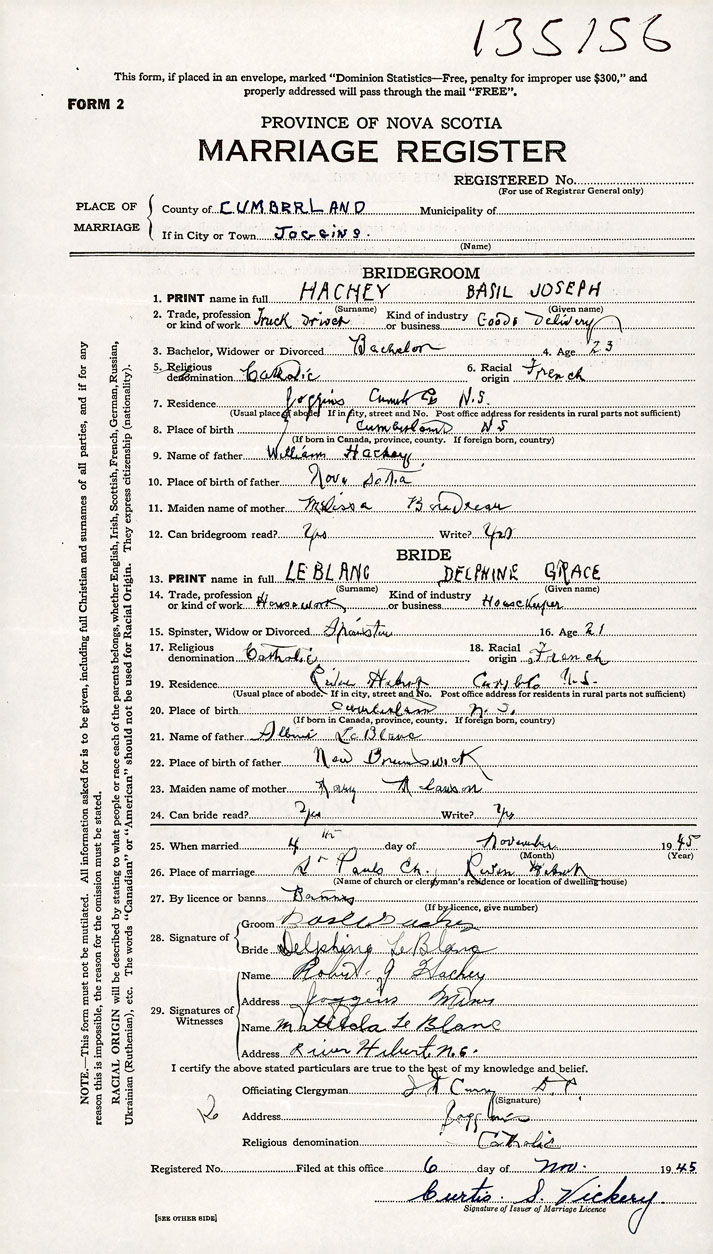 135156
This form, if placed in an envelope, marked "Dominion Statistics—Free, penalty for improper use $300," and
properly addressed will pass through the mail "FREE".
FORM 2
PROVINCE OF NOVA SCOTIA
MARRIAGE REGISTER
REGISTERED No.
(For use of Registrar General only)
PLACE OF MARRIAGE
County of CUMBERLAND Municipality of
If in City or Town JOGGINS.
(Name)
BRIDEGROOM
1. PRINT name in full HACHEY BASIL JOSEPH
(Surname) (Given name)
2. Trade, profession or kind of work Truck Driver Kind of industry or business Goods Delivery
3. Bachelor, Widower or Divorced Bachelor 4. Age 23
5. Religious denomination Catholic 6. Racial origin French
7. Residence Joggins Cumb Co N.S.
(Usual place of abode. If in city, street and No. Post office address for residents in rural parts not sufficient)
8. Place of birth Cumberland N S
(If born in Canada, province, county. If foreign born, country)
9. Name of father William Hachey
10. Place of birth of father Nova Scotia
11. Maiden name of mother Melissa Boudreau
12. Can bridegroom read? Yes Write? Yes
BRIDE
13. PRINT name in full LEBLANC DELPHINE GRACE
(Surname) (Given name)
14. Trade, profession or kind of work Housework Kind of industry or business Housekeeper
15. Spinster, Widow or Divorced Spinster 16. Age 21
17. Religious denomination Catholic 18. Racial origin French
19. Residence River Hebert N.S.
(Usual place of abode. If in city, street and No. Post office address for residents in rural parts not sufficient)
20. Place of birth Cumberland N.S.
(If born in Canada, province, county. If foreign born, country)
21. Name of father LeBlanc
22. Place of birth of father New Brunswick
23. Maiden name of mother
24. Can bride read? Yes Write? Yes
25. When married 4 th day of November 1945
(Month) (Year)
26. Place of marriage St Pauls Ch. River Hebert
(Name of church or clergyman's residence or location of dwelling house)
27. By licence or banns Banns
(If by licence, give number)
28. Signature of
Groom
Bride Delphine LeBlanc
29. Signatures of Witnesses
Name Robert J Hachey
Address Joggins Mines
Name Matilda LeBlanc
Address River Hebert, N.S.
I certify the above stated particulars are true to the best of my knowledge and belief.
Officiating Clergyman
(Signature)
Address Joggins
Religious denomination Catholic
Registered No. Filed at this office 6 day of Nov. 1945
Curtis S. Vickery
Signature of Issuer of Marriage Licence
[SEE OTHER SIDE]
NOTE.—This form must not be mutilated. All information asked for is to be given, including full Christian and surnames of all parties, and if for any
reason this is impossible, the reason for the omission must be stated.
RACIAL ORIGIN will be described by stating to what people or race each of the parents belongs, whether English, Irish, Scottish, French, German, Russian,
Ukrainian (Ruthenian), etc. The words "Canadian" or "American" should not be used for Racial Origin. They express citizenship (nationality).